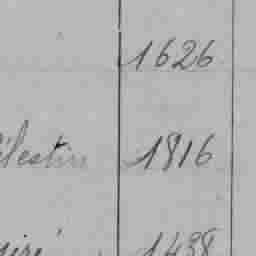 1626
élestin 1816
1438